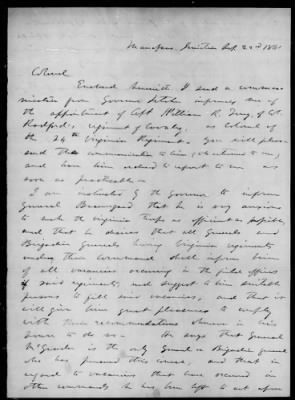 Manassas Junction Sep. 22nd 1861
Colonel
Enclosed herewith I send a commu-
nication from Governor Letcher informing me of
the appointment of Capt William R. Terry of Col
Radford's, regiment of Cavalry, as Colonel of
the 24th Virginia Regiment. You will please
send this communication to him
and have him ordered to report to me as
soon as practicable.
I am instructed by the Governor to inform
General Beauregard that he is very anxious
to make the Virginia troops as efficient as possible,
and that he desires that all Generals and
Brigadier Generals having Virginia regiments
under their command shall inform him
of all vacancies occurring in the field offices
of said regiments, and suggest to him suitable
persons to fill said vacancies, and that it
will give him great pleasure to comply
with those recommendations whenever in his
power to do so. He says that General
McGruder is the only General or Brigadier general
who has pursued this course, and that in
regard to vacancies that have occurred in
other commands he has been left to act upon